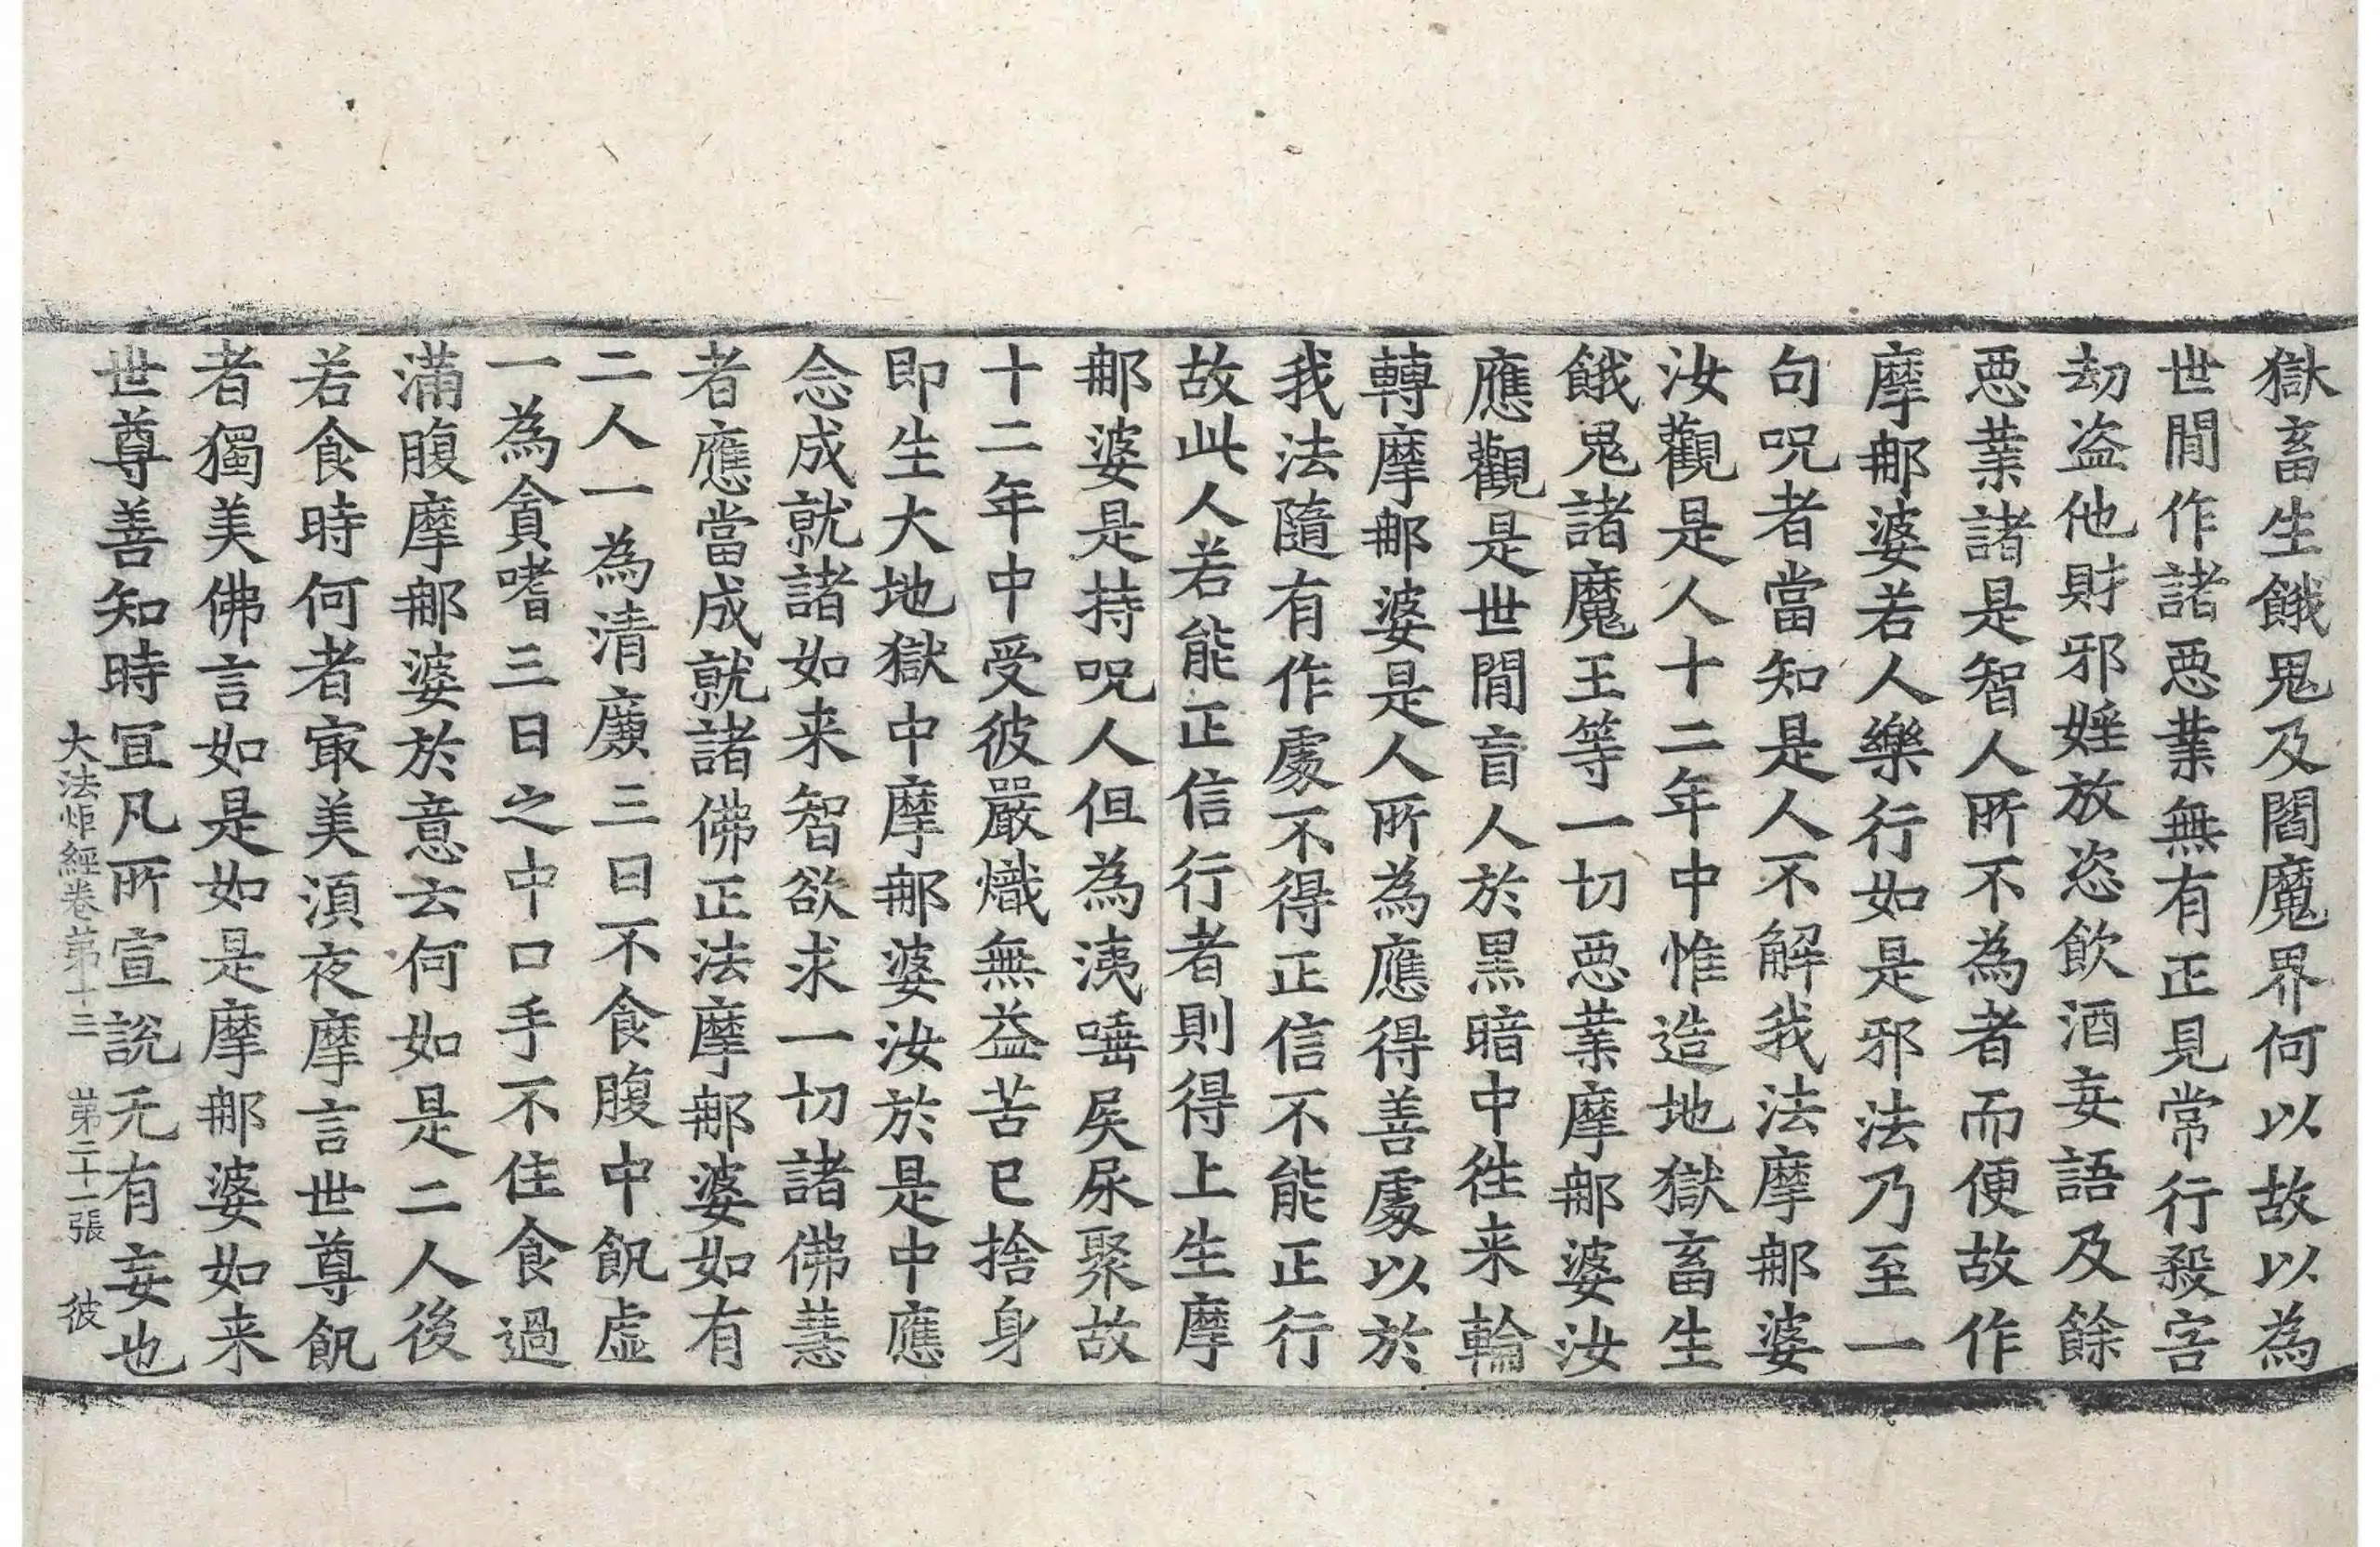 獄畜生餓鬼及閻魔界何以故以為
世間作諸惡業無有正見常行殺害
劫盗他財邪婬放恣飲酒妄語及餘
惡業諸是智人所不為者而便故作
摩那婆若人樂行如是邪法乃至一
句呪者當知是人不解我法摩那婆
汝觀是人十二年中惟造地獄畜生
餓鬼諸魔王等一切惡業摩那婆汝
應觀是世間盲人於黑暗中往来輪
轉摩那婆是人所為應得善處以於
我法隨有作處不得正信不能正行
故此人若能正信行者則得上生摩
那婆是持呪人但為洟唾屎尿聚故
十二年中受彼嚴熾無益苦已捨身
即生大地獄中摩那婆汝於是中應
念成就諸如来智欲求一切諸佛慧
者應當成就諸佛正法摩那婆如有
二人一為清廉三日不食腹中飢虛
一為貪嗜三日之中口手不住食過
滿腹摩那婆於意云何如是二人後
若食時何者㝡美湏夜摩言世尊飢
者獨美佛言如是如是摩那婆如来
世尊善知時冝凡所宣説无有妄也
大法炬經卷苐十三 苐二十一張 彼